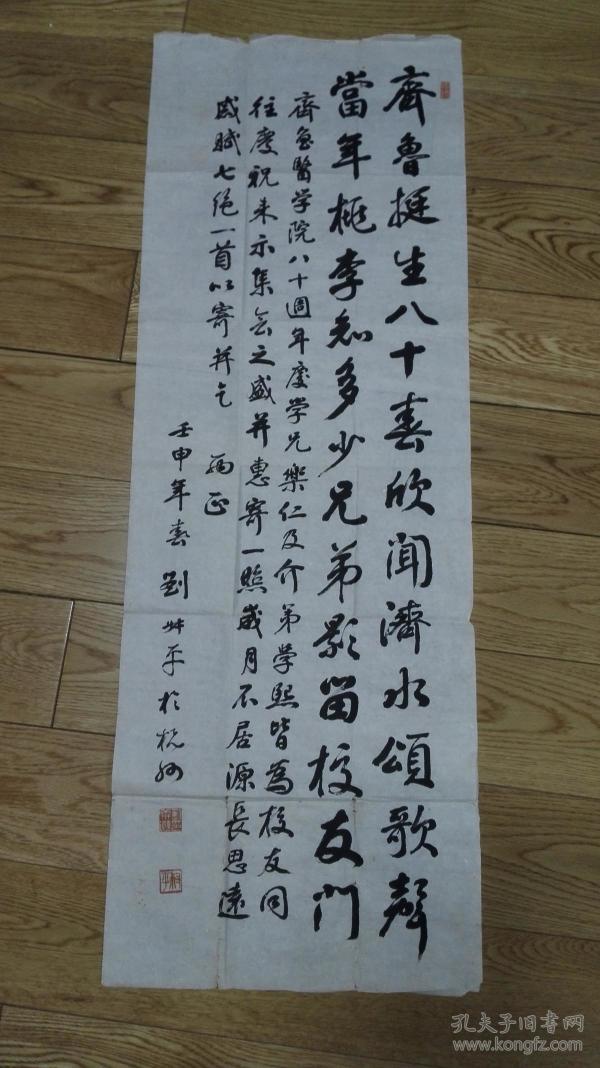 齊魯挺生八十春欣聞濟水頌歌聲
當年桃李知多少兄弟影留校友門
齊魯醫学院八十週年慶学兄樂仁及介弟学熙皆為校友同
往慶祝来示集会之盛并惠寄一照歲月不居源長思遠
感賦七绝一首以寄并乞
两正
壬申年春劉艸平於杭州
孔夫子旧書网
www.kongfz.com